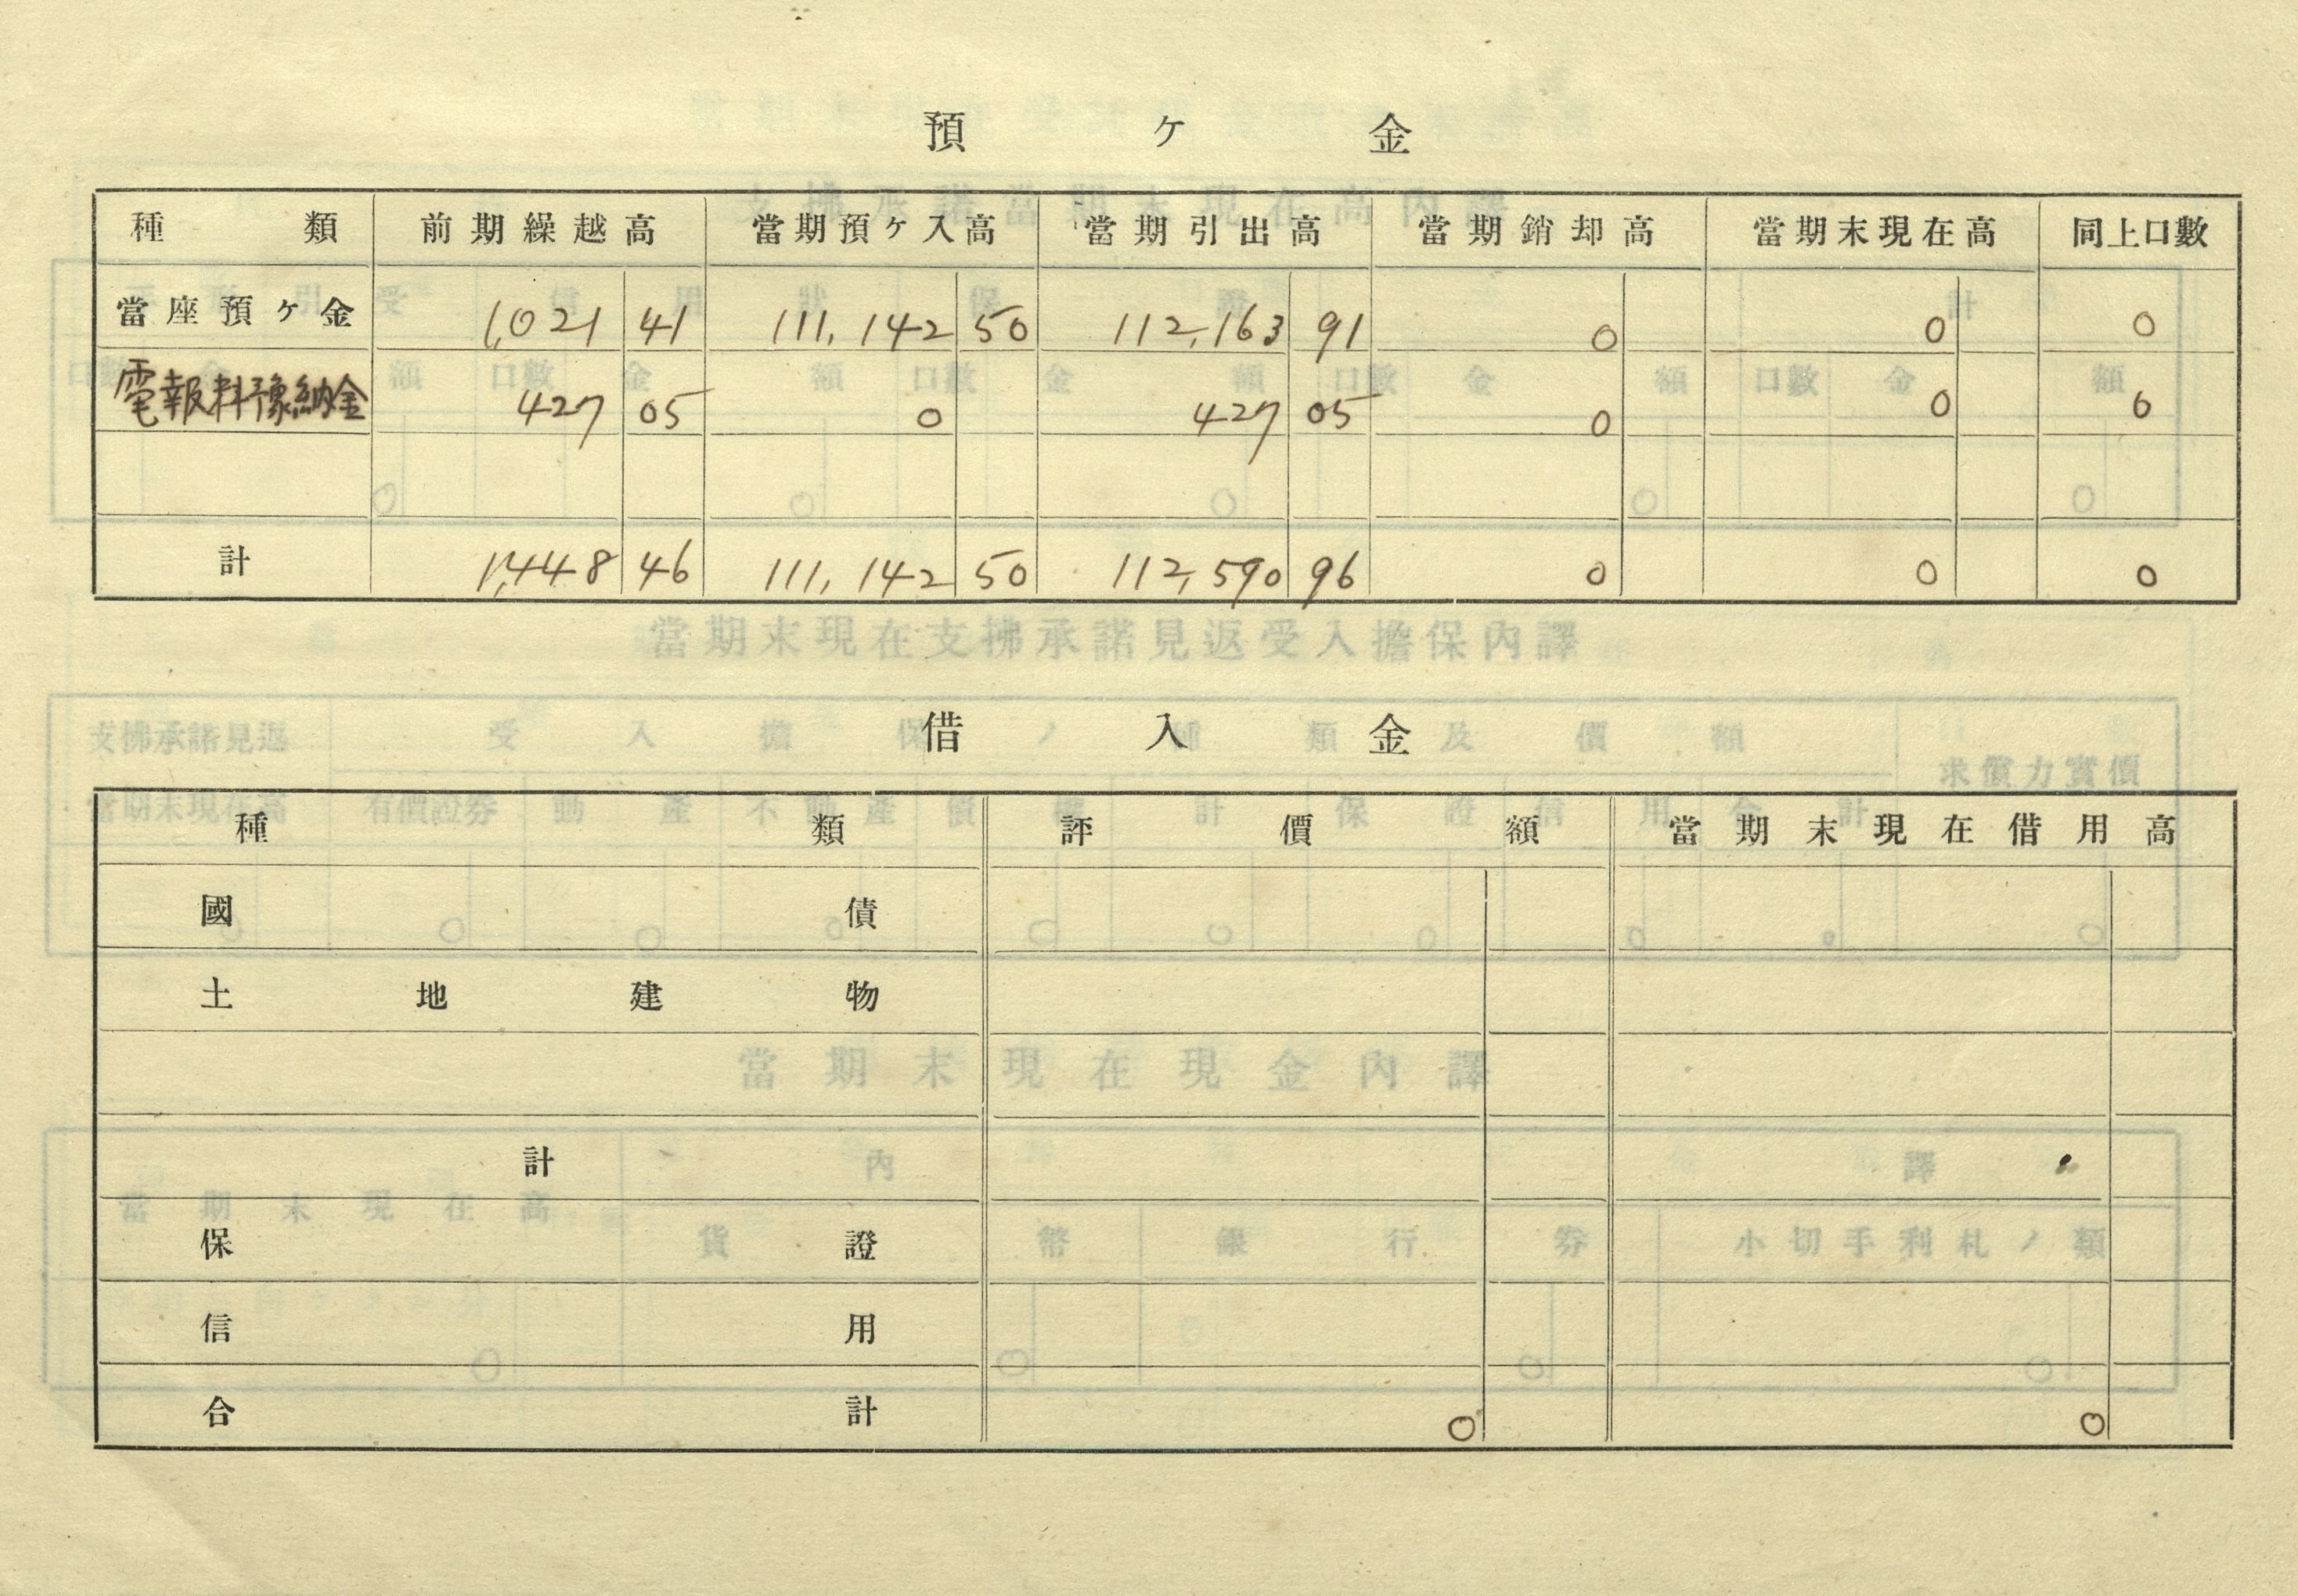 預ケ金
種類 前期繰越高 當期預ケ入高 當期引出高 當期銷却高 當期末現在高 同上口數
當座預ケ金 1,021 41 111,142 50 112,163 91 0 0 0
電報料豫納金 427 05 0 427 05 0 0 0
計 1,448 46 111,142 50 112,590 96 0 0 0
借入金
種類 評價額 當期末現在借用高
國債
土地建物
計
保證
信用
合計 0 0